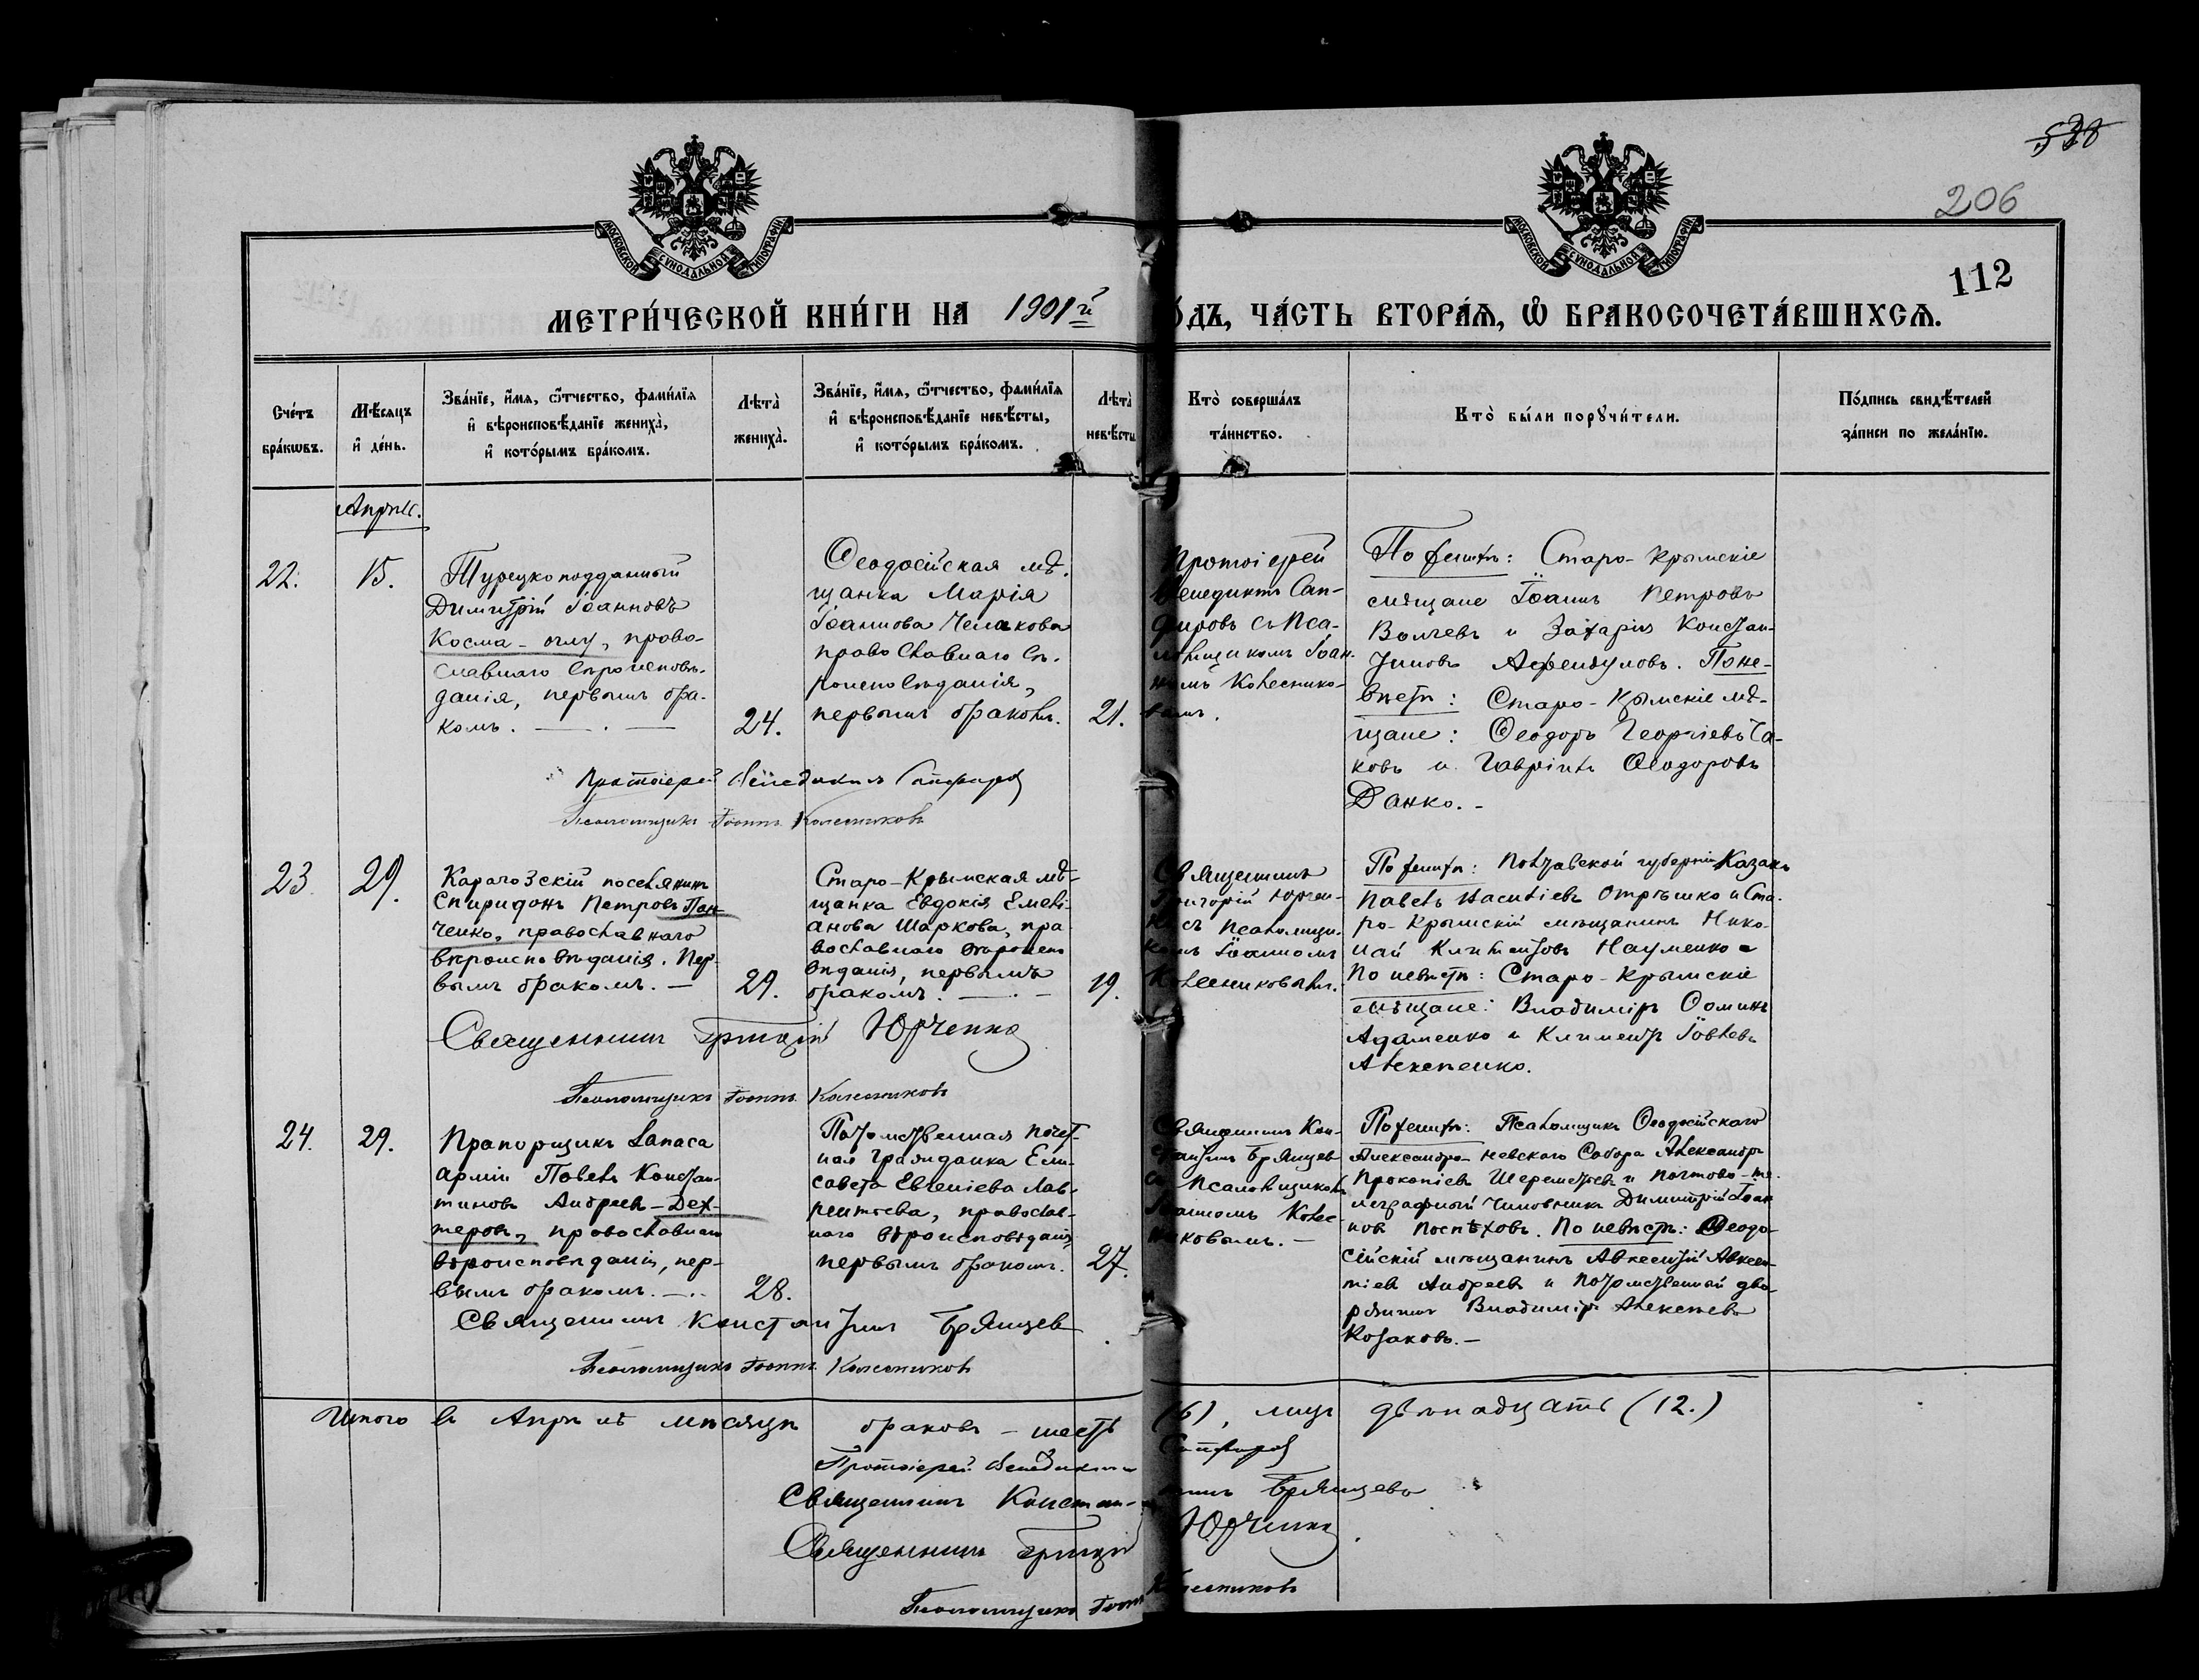 538
206
112
МОСКОВСКОЙ СѴНОДАЛЬНОЙ ТИПОГРАФІИ
МОСКОВСКОЙ СѴНОДАЛЬНОЙ ТИПОГРАФІИ
МЕТРИ́ЧЕСКОЙ КНИ́ГИ НА 1901й ОДЪ, ЧА́СТЬ ВТОРА́Я, Ѡ БРАКОСОЧЕТА́ВШИХСЯ.
Сче́тъ
бра́кωвъ.
Мѣ́сяцъ
и҆ де́нь.
Зва́нїе, и҆́мя, ѻ҆́тчество, фами́лїя
и҆ вѣроисповѣ́данїе жениха̀,
и҆ кото́рымъ бра́комъ.
Лѣта̀
жениха̀.
Зва́нїе, и҆́мя, ѻ҆́тчество, фами́лїя
и҆ вѣроисповѣ́данїе невѣ́сты,
и҆ кото́рымъ бра́комъ.
Лѣта̀
невѣ́сты
Кто̀ соверша́лъ
та́инство.
Кто̀ бы́ли порꙋчи́тели.
По́дпись свидѣ́телей
за́писи по жела́нїю.
Апрѣль.
22.
15.
Турецко подданный
Димитрій Іоанновъ
Косма-оглу, право-
славнаго вѣроисповѣ-
данія, первымъ бра-
комъ.
24.
Ѳеодосійская мѣ-
щанка Марія
Іоаннова Челакова
православнаго вѣ-
роисповѣданія,
первымъ бракомъ.
21.
Протоіерей
Венедиктъ Сап-
фировъ съ Пса-
ломщикомъ Іоан-
номъ Колеснико-
вымъ.
По женихѣ: Старо-Крымскіе
мѣщане Іоаннъ Петровъ
Волчевъ и Захарія Констан-
тиновъ Афендуловъ. По не-
вѣстѣ: Старо-Крымскіе мѣ-
щане: Ѳеодоръ Георгіевъ Ча-
ковъ и Гавріилъ Ѳеодоровъ
Данко.-
Протоіерей Венедиктъ Сапфировъ
Псаломщикъ Іоаннъ Колесниковъ
23.
29.
Карагозскій поселянинъ
Спиридонъ Петровъ Пан-
ченко, православнаго
вѣроисповѣданія. Пер-
вымъ бракомъ. —
29.
Старо-Крымская мѣ-
щанка Евдокія Емелі-
анова Шаркова, пра
вославнаго вѣроиспо
вѣданія, первымъ
бракомъ.
19.
Священникъ
Григорій Юрчен-
ко съ Псаломщи-
комъ Іоанномъ
Колесниковымъ.
По женихѣ: Полтавской губерніи Казакъ
Павелъ Василіевъ Отрѣшко и Ста-
ро-Крымскій мѣщанинъ Нико-
лай Климентовъ Науменко а
По невѣстѣ: Старо-Крымскіе
мѣщане: Владиміръ Ѳоминъ
Адаменко и Климентъ Іовлевъ
Алексенко.
Священникъ Григорій Юрченко
Псаломщикъ Іоаннъ Колесниковъ
24.
29.
Прапорщикъ Запаса
арміи Павелъ Констан-
тиновъ Андреевъ-Дех-
теровъ, православнаго
вѣроисповѣданія, пер-
вымъ бракомъ.
28.
Потомственная почет-
ная гражданка Ели-
савета Евгеніева Лав-
рентьева, православ-
наго вѣроисповѣданія,
первымъ бракомъ.
27.
Священникъ Кон-
стантинъ Брянцевъ
съ Псаломщикомъ
Іоанномъ Колес-
никовымъ. —
По женихѣ: Псаломщикъ Ѳеодосійскаго
Александро-Невскаго Собора Александръ
Прокопіевъ Шереметьевъ и почтово-те-
леграфный чиновникъ Димитрій Іоан
новъ Поспѣховъ. По невѣстѣ: Ѳеодо-
сійскій мѣщанинъ Авксентій Авксен-
тіевъ Андреевъ и потомственный дво-
рянинъ Владиміръ Алексѣевъ
Козаковъ. —
Священникъ Константинъ Брянцевъ
Псаломщикъ Іоаннъ Колесниковъ
Итого въ Апрѣлѣ мѣсяцѣ браковъ - шесть (6), лицъ двѣнадцать (12.)
Протоіерей Венедиктъ Сапфировъ
Священникъ Константинъ Брянцевъ
Священникъ Григорій Юрченко
Псаломщикъ Іоаннъ Колесниковъ